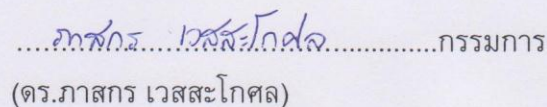 ....ภาสกร.....เวสสะโกศล...............กรรมการ
(ดร.ภาสกร เวสสะโกศล)